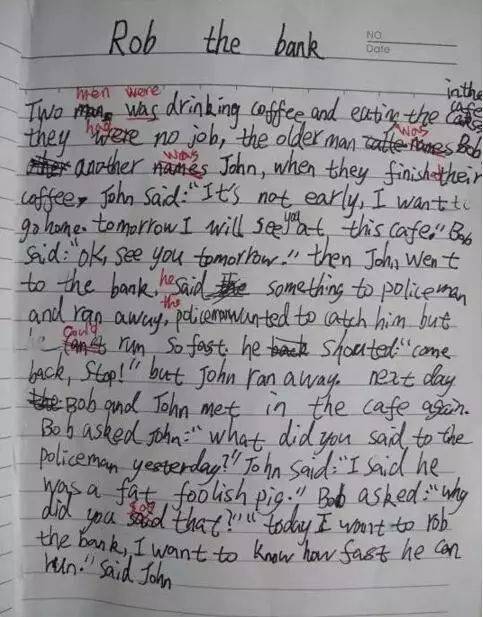 Rob the bank
NO.
Date
men were in the cafe
Two man was drinking coffee and eating the cakes
had was
they were no job, the older man names Bob
was
another names John, when they finished their
coffee, John said:"It's not early, I want to
you
go home. tomorrow I will see at this cafe." Bob
said:"ok, see you tomorrow." then John went
he
to the bank, said something to policeman
the
and ran away, policeman wanted to catch him but
could
he can't run so fast. he back shouted:"come
back, stop!" but John ran away. next day
the Bob and John met in the cafe again.
Bob asked John:"what did you said to the
policeman yesterday?" John said:"I said he
was a fat foolish pig." Bob asked:"why
say
did you said that?" "today I want to rob
the bank, I want to know how fast he can
run." said John